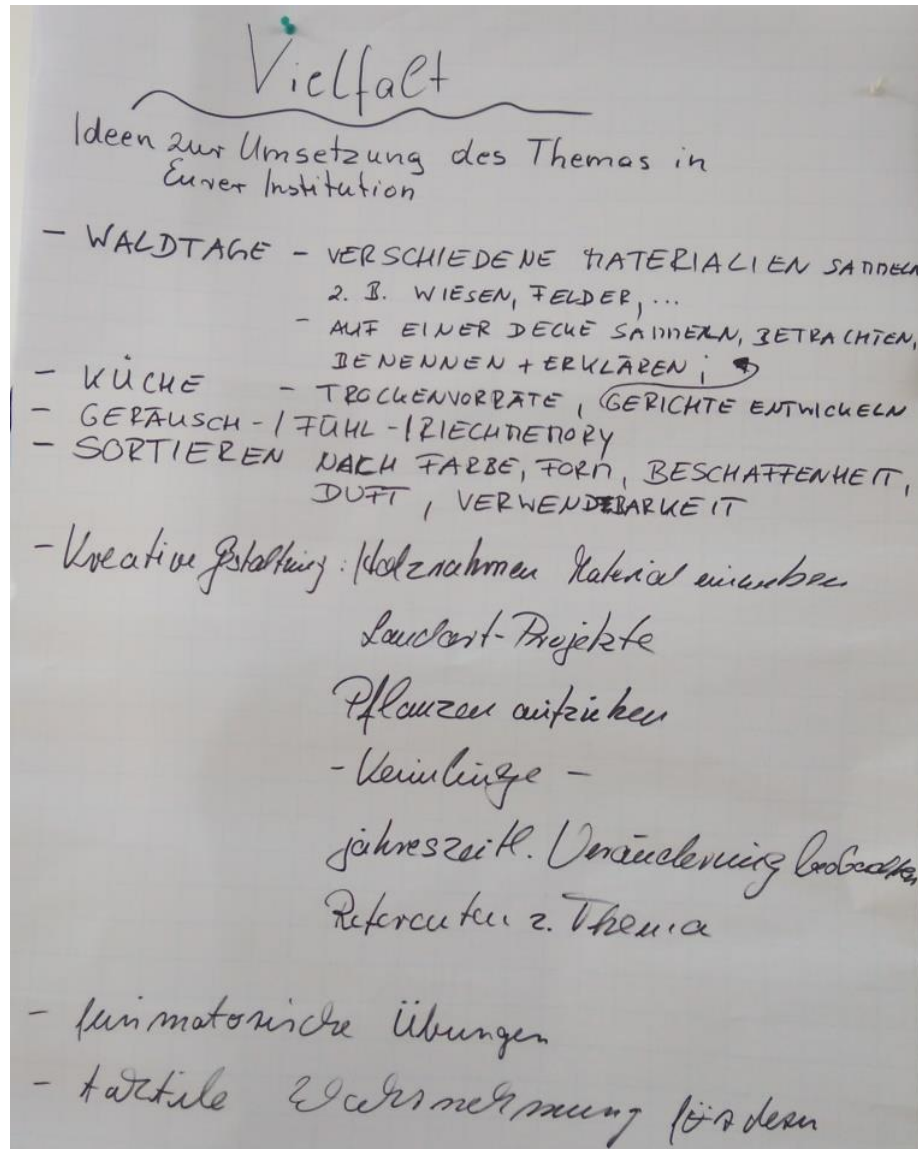 Vielfalt
Ideen zur Umsetzung des Themas in
Eurer Institution
- WALDTAGE - VERSCHIEDENE MATERIALIEN SAMMELN
Z. B. WIESEN, FELDER, ...
- AUF EINER DECKE SAMMELN, BETRACHTEN,
BENENNEN + ERKLÄREN;
- KÜCHE - TROCKENVORRÄTE, GERICHTE ENTWICKELN
- GERÄUSCH-/FÜHL-/RIECHMEMORY
- SORTIEREN NACH FARBE, FORM, BESCHAFFENHEIT,
DUFT, VERWENDBARKEIT
- Kreative Gestaltung: Holzrahmen Material einweben
Landart-Projekte
Pflanzen aufziehen
- Keimlinge -
jahreszeitl. Veränderung beobachten
Referenten z. Thema
- feinmotorische Übungen
- taktile Wahrnehmung fördern